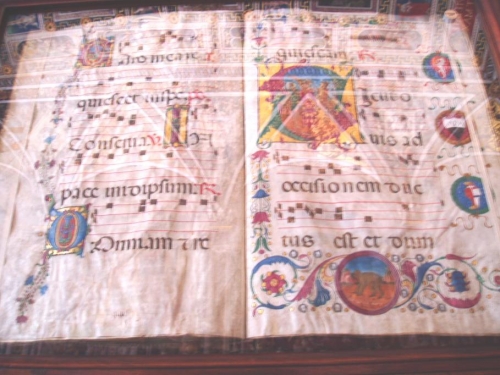 Caro mea re
quiescet in spe
Conserua
pace in idipsum
Dormiam et re
quiescam
Sicut o
uis ad
occisionem duc
tus est et dum